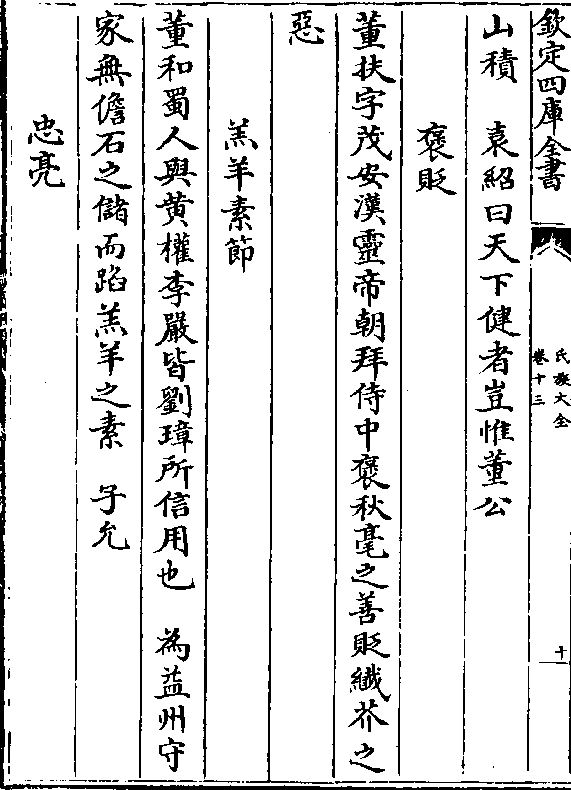 欽定四庫全書
氏族大全
卷十三
十
山積　袁紹曰天下健者豈惟董公
褒貶
董扶字茂安漢靈帝朝拜侍中褒秋毫之善貶纖芥之
惡
羔羊素節
董和蜀人與黃權李嚴皆劉璋所信用也　為益州守
家無儋石之儲而蹈羔羊之素　子允
忠亮